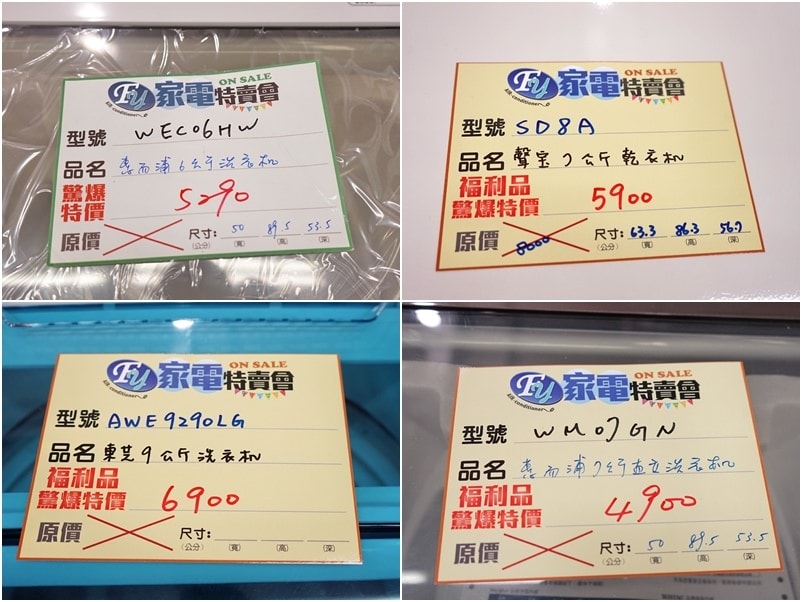 FY 家電特賣會 ON SALE
air conditioner
型號 WEC06HW
品名 惠而浦6公斤洗衣机
驚爆特價 5290
原價 尺寸: 50 89.5 53.5
(公分) (寬) (高) (深)
FY 家電特賣會 ON SALE
air conditioner
型號 SD8A
品名 聲宝7公斤乾衣机
福利品
驚爆特價 5900
原價 8000 尺寸: 63.3 86.3 56.7
(公分) (寬) (高) (深)
FY 家電特賣會 ON SALE
air conditioner
型號 AWE9290LG
品名 東芝9公斤洗衣机
福利品
驚爆特價 6900
原價 尺寸:
(公分) (寬) (高) (深)
FY 家電特賣會 ON SALE
air conditioner
型號 WM07GN
品名 惠而浦7公斤直立洗衣机
福利品
驚爆特價 4900
原價 尺寸: 50 89.5 53.5
(公分) (寬) (高) (深)